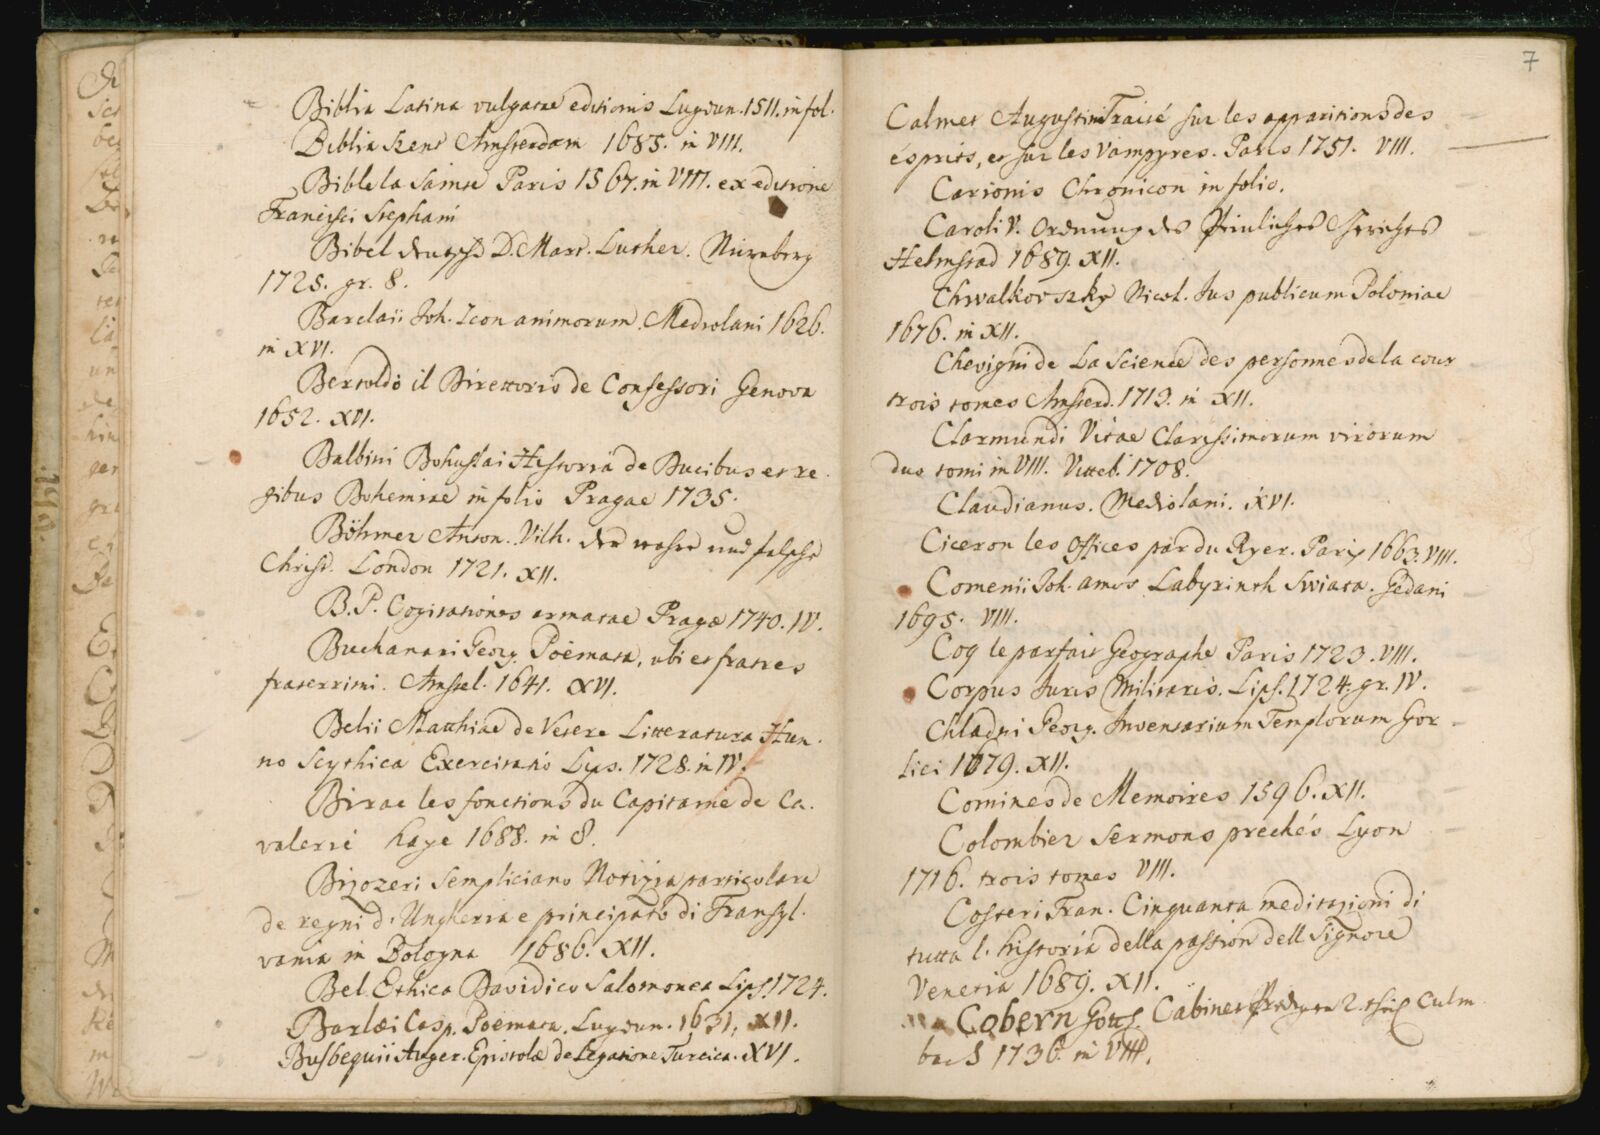 Biblia Latina vulgatae editionis Lugdun. 1511. in fol.
Biblia Amsterdam 1685. in VIII.
Bible la Sainte Paris 1567. in VIII. ex editione
Francisci Stephani
Bibel deutsch D. Mart. Luther. Nürnberg
1725. gr. 8.
Barclaii Joh. Icon animorum. Mediolani 1626.
in XVI.
Bertoldo il Direttorio de Confessori Genova
1652. XVI.
Balbini Bohuslai Historia de Ducibus et re
gibus Bohemiae in folio Pragae 1735.
Böhmer Anton. Vilh. der wahre und falsche
Christ. London 1721. XII.
B. P. Cogitationes armatae Pragae 1740. IV.
Buchanani Georg. Poëmata, ubi et fratres
fraterrimi. Amstel. 1641. XVI.
Belii Matthiae de Vetere Litteratura Hun
no Scythica Exercitatio Lips. 1728. in IV.
Birac les fonctions du Capitaine de Ca.
valerie haye 1688. in 8.
Bizozeri Sempliciano Notizia particolare
de regni d. Ungheria e principato di Transyl.
vania in Bologna 1686. XII.
Bel. Ethica Davidico Salomonea Lips. 1724.
Barlæi Casp. Poemata. Lugdun. 1631. XII.
Busbequii Auger. Epistolæ de Legatione Turcica. XVI.
7
Calmet Augustini Traité sur les apparitions des
ésprits, et sur les Vampyres. Paris 1751. VIII.
Carionis Chronicon in folio.
Caroli V. Ordnung des Peinlichen Gerichts
Helmstad 1689. XII.
Chwalkowszky Nicol. Jus publicum Poloniae
1676. in XII.
Chevigni de La Science des personnes de la cour
trois tomes Amsterd. 1713. in XII.
Clarmundi Vitae Clarissimorum virorum
duo tomi in VIII. Vitteb. 1708.
Claudianus. Mediolani. XVI.
Ciceron les Offices par du Ryer. Paris 1663. VIII.
Comenii Joh. amos Labyrinth Swiata. Gedani
1695. VIII.
Coq le parfait Geographe Paris 1723. VIII.
Corpus Juris Militaris. Lips. 1724. gr. IV.
Chladni Georg. Inventarium Templorum Gor
lici 1679. XII.
Comines de Memoires 1596. XII.
Colombier Sermons prechés Lyon
1716. trois tomes VIII.
Costeri Fran. Cinquanta meditazioni di
tutta l. historia della passion dell Signore
Venetia 1689. XII.
Cobern Gottf. Cabinet Predigten 2. theil Culm
bach 1736. in VIII.